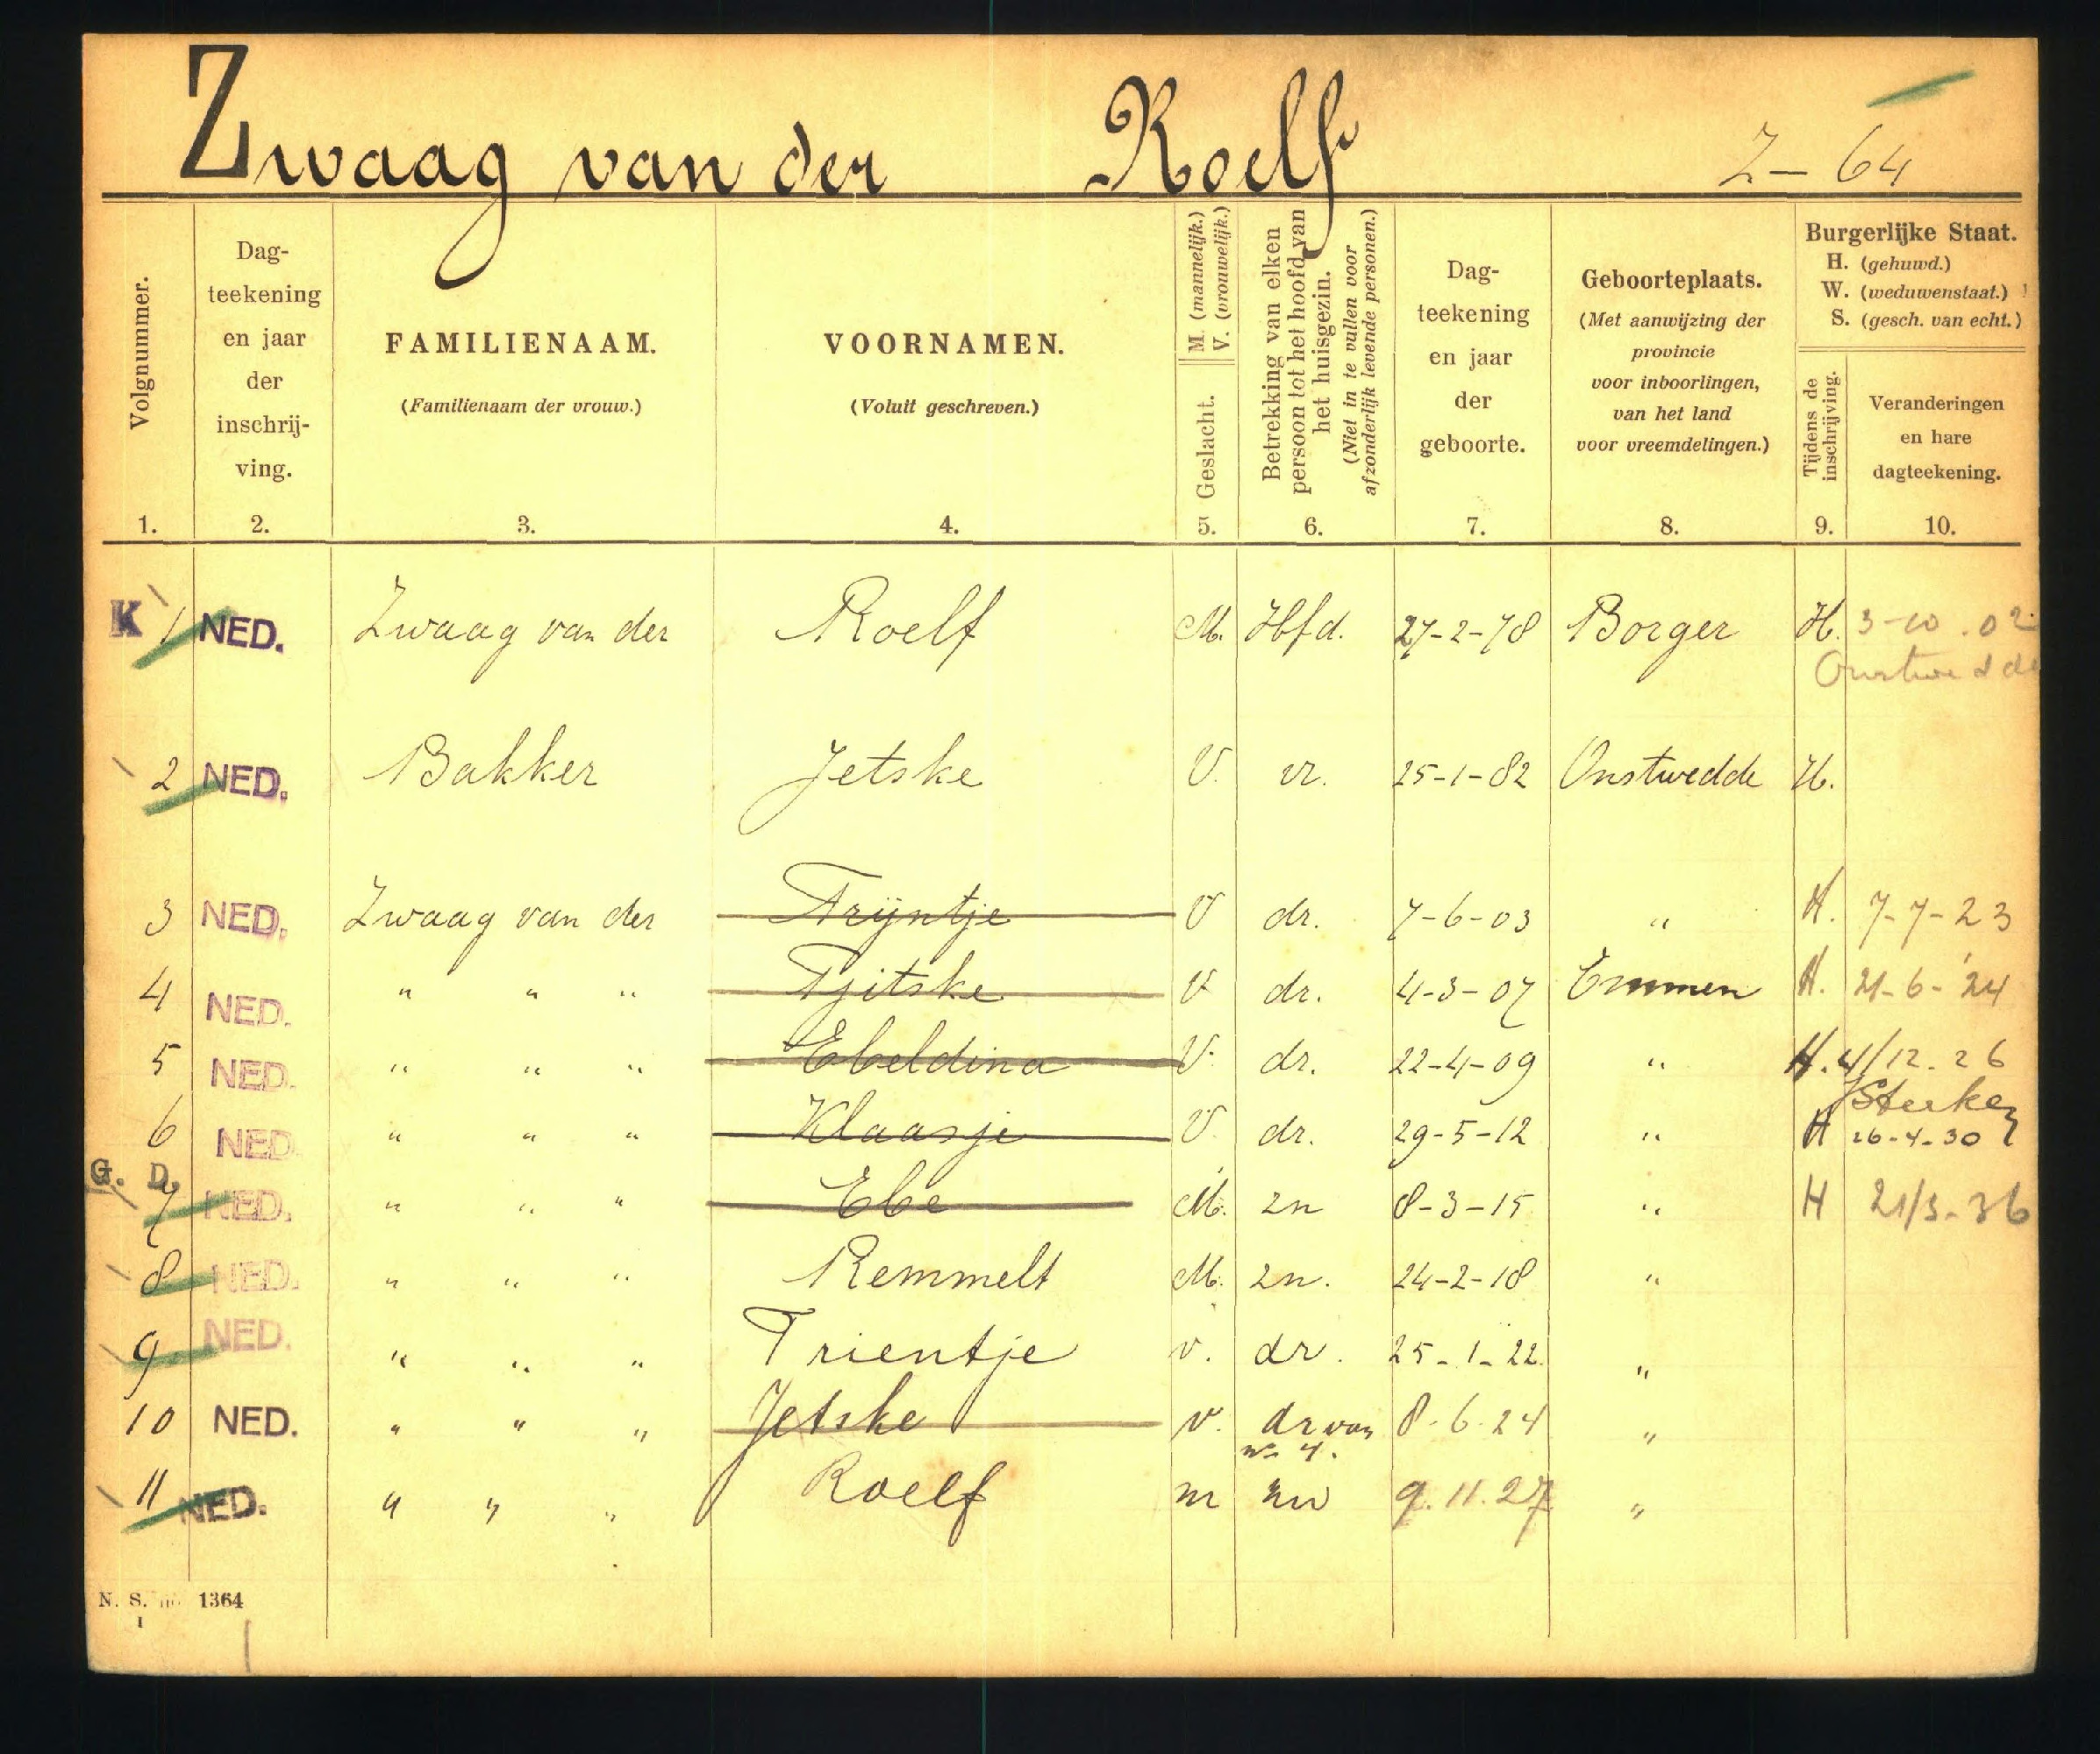 Zwaag van der Roelf Z-64
Volgnummer.
1.
Dag-
teekening
en jaar
der
inschrij-
ving.
2.
FAMILIENAAM.
(Familienaam der vrouw.)
3.
VOORNAMEN.
(Voluit geschreven.)
4.
M. (mannelijk.)
V. (vrouwelijk.)
Geslacht.
5.
Betrekking van elken
persoon tot het hoofd van
het huisgezin.
(Niet in te vullen voor
afzonderlijk levende personen.)
6.
Dag-
teekening
en jaar
der
geboorte.
7.
Geboorteplaats.
(Met aanwijzing der
provincie
voor inboorlingen,
van het land
voor vreemdelingen.)
8.
Burgerlijke Staat.
H. (gehuwd.)
W. (weduwenstaat.)
S. (gesch. van echt.)
Tijdens de
inschrijving.
9.
Veranderingen
en hare
dagteekening.
10.
K 1 NED. Zwaag van der Roelf M. Hfd. 27-2-78 Borger H. 3-10.02
Onstwedde
2 NED. Bakker Jetske V. vr. 25-1-82 Onstwedde H.
3 NED. Zwaag van der Trijntje V dr. 7-6-03 " H. 7-7-23
4 NED. " " " Tjitske V dr. 4-3-07 Emmen H. 21-6-'24
5 NED. " " " Ebeldina V. dr. 22-4-09 " H. 4/12.26
6 NED " " " Klaasje V. dr. 29-5-12 " H 26-4-30
G. D.
7 NED. " " " Ebe M. zn 8-3-15 " H 21/3-36
8 NED. " " " Remmelt M. zn. 24-2-18 "
9 NED. " " " Trientje v. dr. 25-1-22. "
10 NED. " " " Jetske v. dr van 8-6-24 "
no 4.
11 NED. " " " Roelf m 9.11.27 "
N. S. no 1364
1